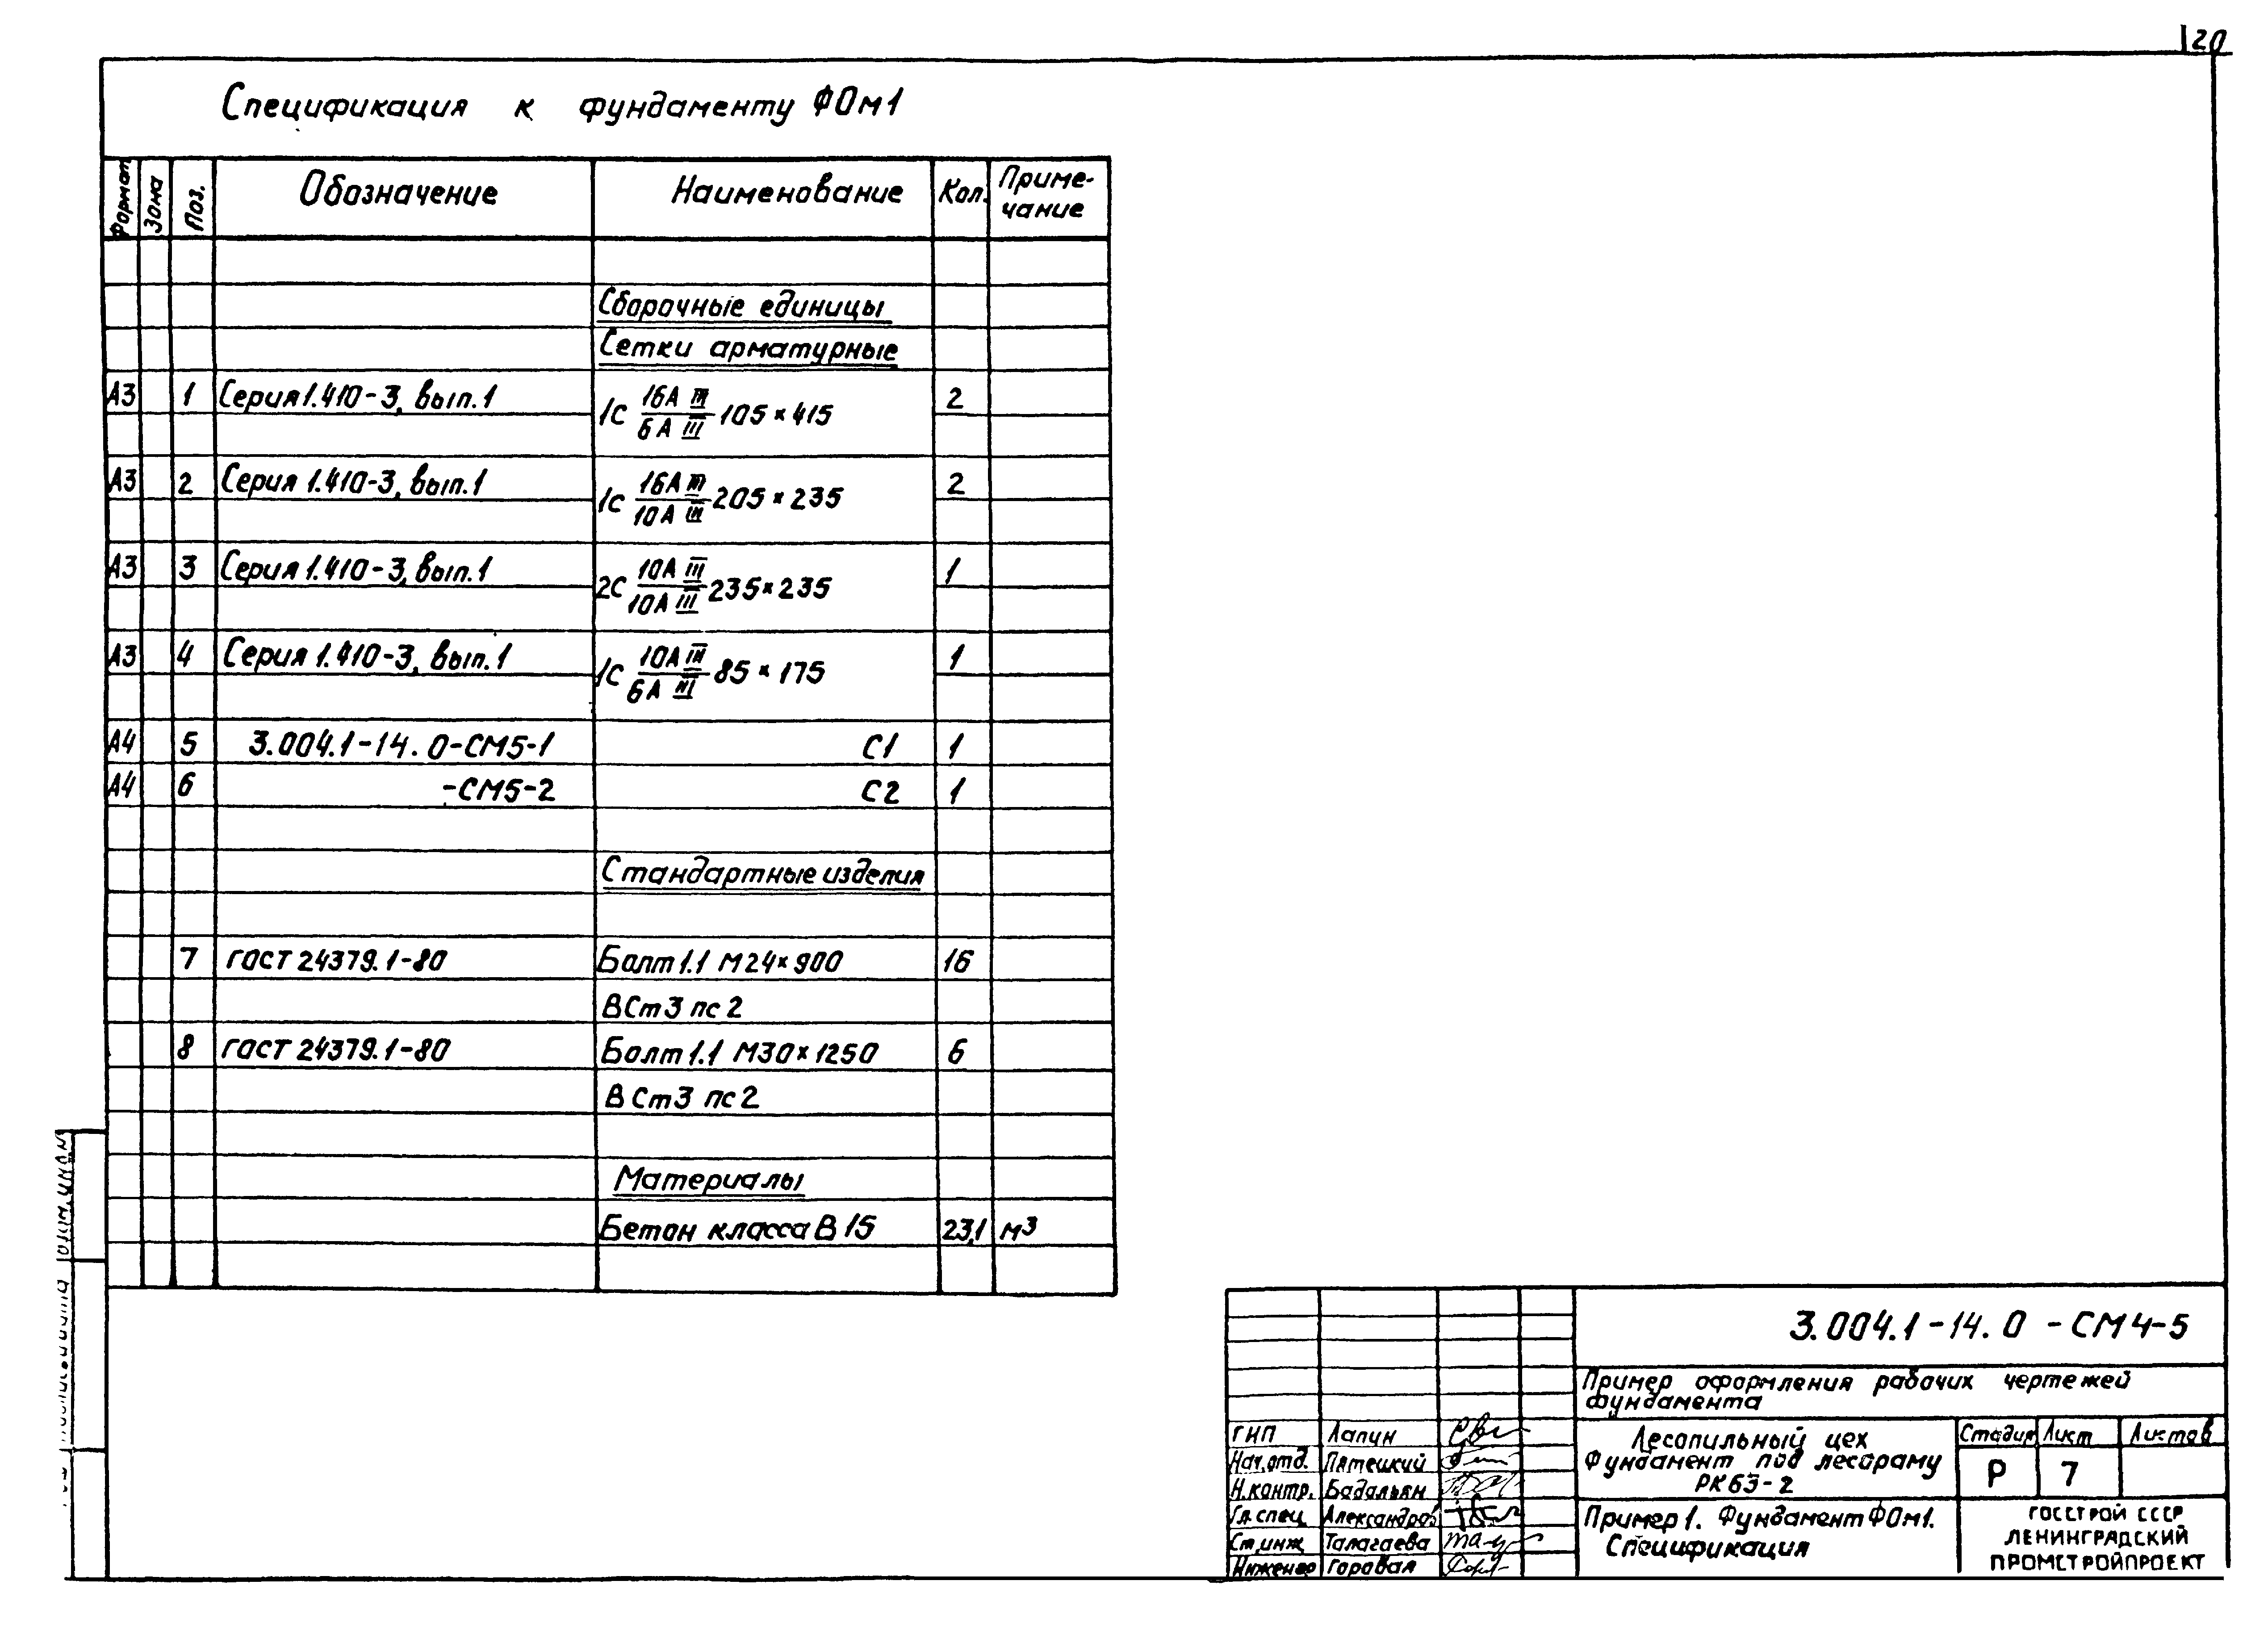 20
Спецификация к фундаменту ФОм1
Формат Зона Поз. Обозначение Наименование Кол. Приме-
чание
Сборочные единицы
Сетки арматурные
А3 1 Серия 1.410-3, вып.1 1С 16А III / 6А III 105×415 2
А3 2 Серия 1.410-3, вып.1 1С 16А III / 10А III 205×235 2
А3 3 Серия 1.410-3, вып.1 2С 10А III / 10А III 235×235 1
А3 4 Серия 1.410-3, вып.1 1С 10А III / 6А III 85×175 1
А4 5 3.004.1-14.0-СМ5-1 С1 1
А4 6 -СМ5-2 С2 1
Стандартные изделия
7 ГОСТ 24379.1-80 Болт 1.1 М24×900 16
ВСт3 пс2
8 ГОСТ 24379.1-80 Болт 1.1 М30×1250 6
ВСт3 пс2
Материалы
Бетон класса В15 23,1 м3
3.004.1-14.0-СМ4-5
Пример оформления рабочих чертежей
фундамента
ГИП Лапин
Нач.отд. Пятецкий
Н.контр. Бадальян
Гл.спец Александров
Ст.инж Талагаева
Инженер Горовая
Лесопильный цех
Фундамент под лесораму
РК63-2
Стадия Лист Листов
Р 7
Пример 1. Фундамент ФОм1.
Спецификация
ГОССТРОЙ СССР
ЛЕНИНГРАДСКИЙ
ПРОМСТРОЙПРОЕКТ